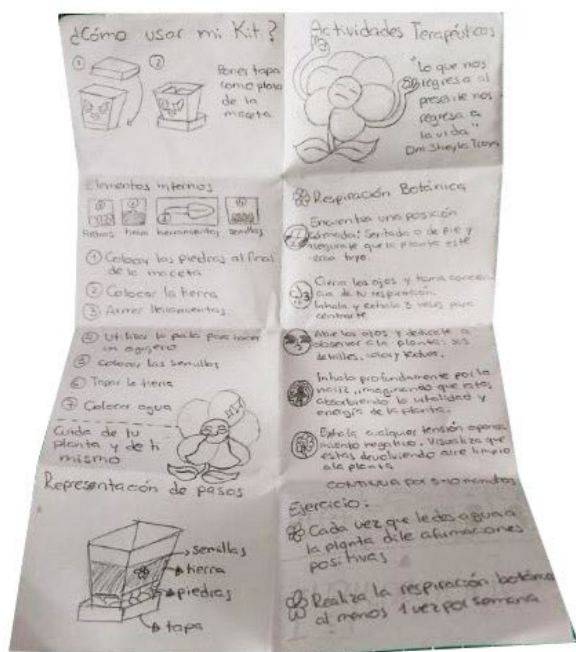 ¿Cómo usar mi Kit?
1
2
Poner tapa
como plato
de la
maceta
Elementos internos
Piedras tierra herramientas semillas
1 Colocar las piedras al final
de la maceta
2 Colocar la tierra
3 Armar herramientas
4 Utilizar la pala para hacer
un agujero
5 Colocar las semillas
6 Tapar la tierra
7 Colocar agua
Cuida de tu
planta y de ti
mismo
Representación de pasos
semillas
tierra
piedras
tapa
Actividades Terapéuticas
"Lo que nos
regresa al
presente nos
regresa a
la vida"
Dra Sheyla
Respiración Botánica
Encuentra una posición
cómoda: Sentado o de pie y
asegurate que la planta este
cerca tuyo
Cierra los ojos y toma concien
cia de tu respiración.
Inhala y exhala 3 veces para
centrarte
Abre los ojos y dedicate a
observar a la planta: sus
detalles, color y textura.
Inhala profundamente por la
nariz, imaginando que estas
absorbiendo la vitalidad y
energía de la planta.
Exhala cualquier tensión o pensa
miento negativo. Visualiza que
estas devolviendo aire limpio
a la planta
CONTINUA POR 5-10 minutos
Ejercicio:
Cada vez que le des agua a
la planta dile afirmaciones
positivas
Realiza la respiración botánica
al menos 1 vez por semana